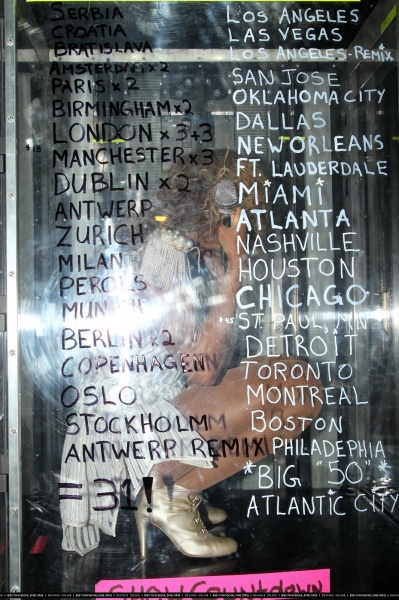 SERBIA
CROATIA
BRATISLAVA
AMSTERDAM x 2
PARIS x 2
BIRMINGHAM x 2
LONDON x 3+3
*18
MANCHESTER x 3
DUBLIN x 2
ANTWERP
ZURICH
MILAN
PEROLS
MUNICH
BERLIN x 2
COPENHAGENN
OSLO
STOCKHOLMM
ANTWERP REMIX
= 31!
LOS ANGELES
LAS VEGAS
LOS ANGELES-REMIX
SAN JOSE
OKLAHOMA CITY
DALLAS
NEW ORLEANS
FT. LAUDERDALE
MIAMI
ATLANTA
NASHVILLE
HOUSTON
CHICAGO
*45
ST. PAUL, MN
DETROIT
TORONTO
MONTREAL
BOSTON
PHILADEPHIA
*BIG "50"*
ATLANTIC CITY
Show Countdown